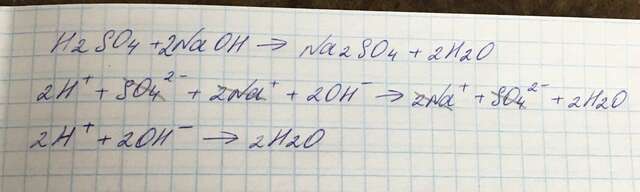 H2SO4 + 2NaOH → Na2SO4 + 2H2O
2H⁺ + SO4²⁻ + 2Na⁺ + 2OH⁻ → 2Na⁺ + SO4²⁻ + 2H2O
2H⁺ + 2OH⁻ → 2H2O